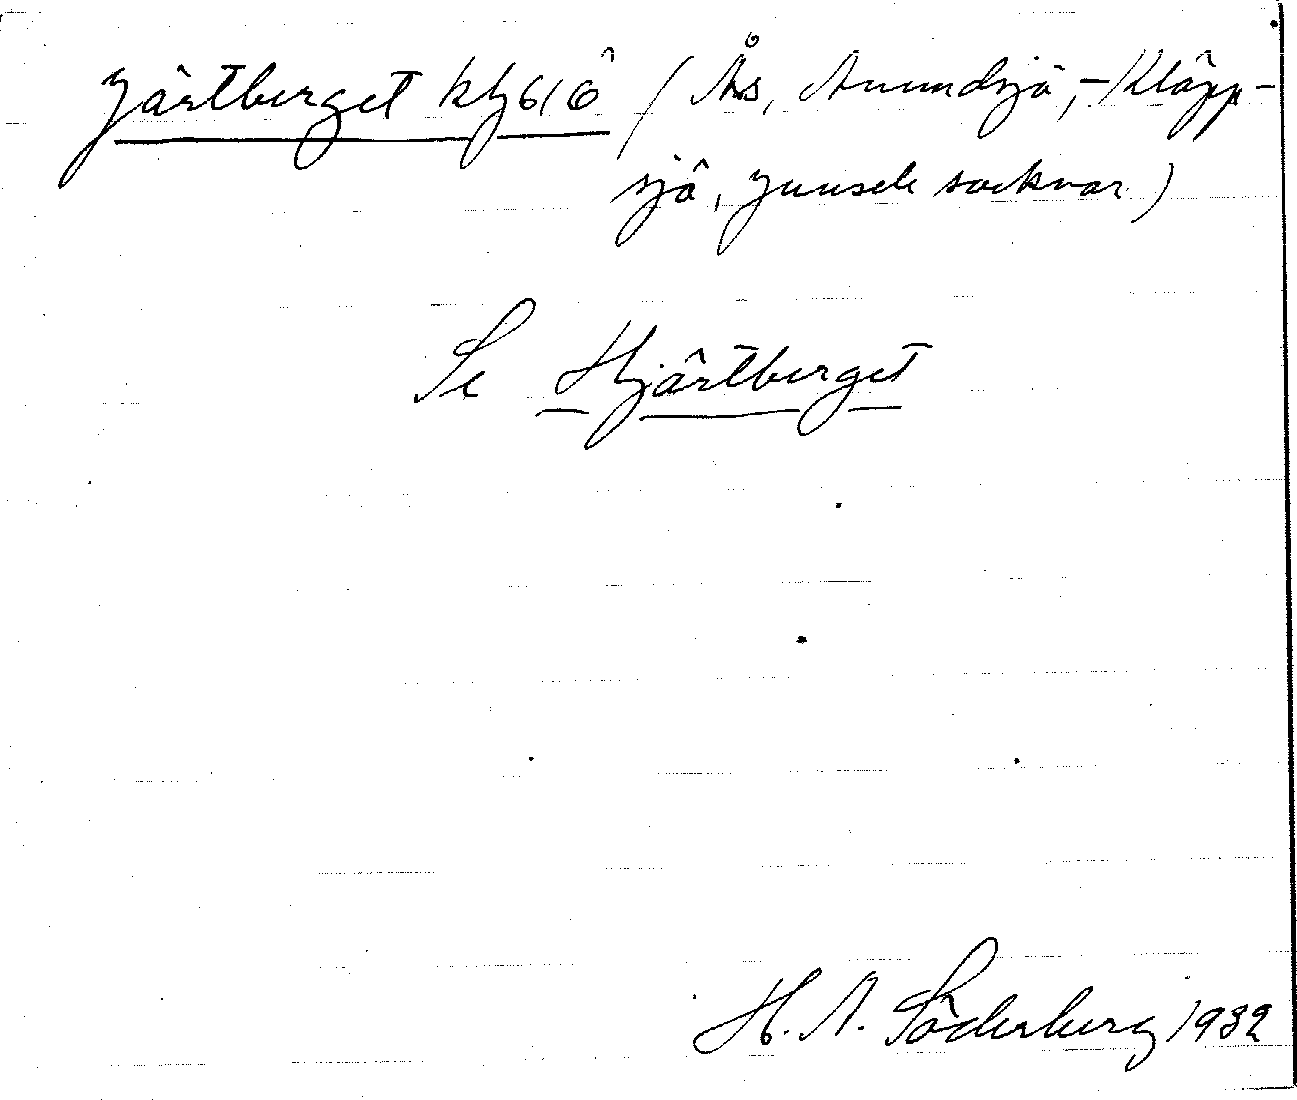 Järtberget kbl616 (Ås, Anundsjö,-Kläpp-
sjö, Junsele socknar)
Se Hjärtberget
H. A. Söderberg 1932